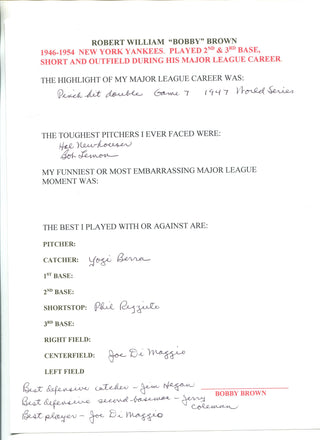 ROBERT WILLIAM "BOBBY" BROWN
1946-1954 NEW YORK YANKEES. PLAYED 2ND & 3RD BASE,
SHORT AND OUTFIELD DURING HIS MAJOR LEAGUE CAREER
THE HIGHLIGHT OF MY MAJOR LEAGUE CAREER WAS:
Pinch hit double Game 7 1947 World Series
THE TOUGHEST PITCHERS I EVER FACED WERE:
Hal Newhouser
Bob Lemon
MY FUNNIEST OR MOST EMBARRASING MAJOR LEAGUE
MOMENT WAS:
THE BEST I PLAYED WITH OR AGAINST ARE:
PITCHER:
CATCHER: Yogi Berra
1ST BASE:
2ND BASE:
SHORTSTOP: Phil Rizzuto
3RD BASE:
RIGHT FIELD:
CENTERFIELD: Joe Di Maggio
LEFT FIELD
Best defensive catcher - Jim Hegan
BOBBY BROWN
Best defensive second-baseman - Jerry
Coleman
Best player - Joe Di Maggio